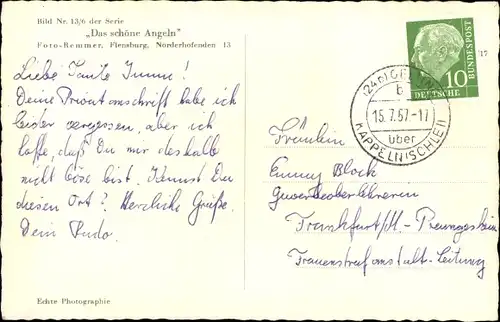 Bild Nr. 13/6 der Serie
„Das schöne Angeln"
Foto-Remmer, Flensburg, Norderhofenden 13
Liebe Tante Immi!
Deine Privatanschrift habe ich
leider vergessen, aber ich
hoffe, daß Du mir deshalb
nicht böse bist. Kennst Du
diesen Ort? Herzliche Grüße.
Dein Pudo.
Echte Photographie
10
DEUTSCHE
BUNDESPOST
(24b)
b
15.7.57.-17
über
KAPPELN(SCHLEI)
Fräulein
Emmy Block
Gewerbeoberlehrerin
Frankfurt/M.-Preungesheim
Frauenstrafanstalt-Leitung